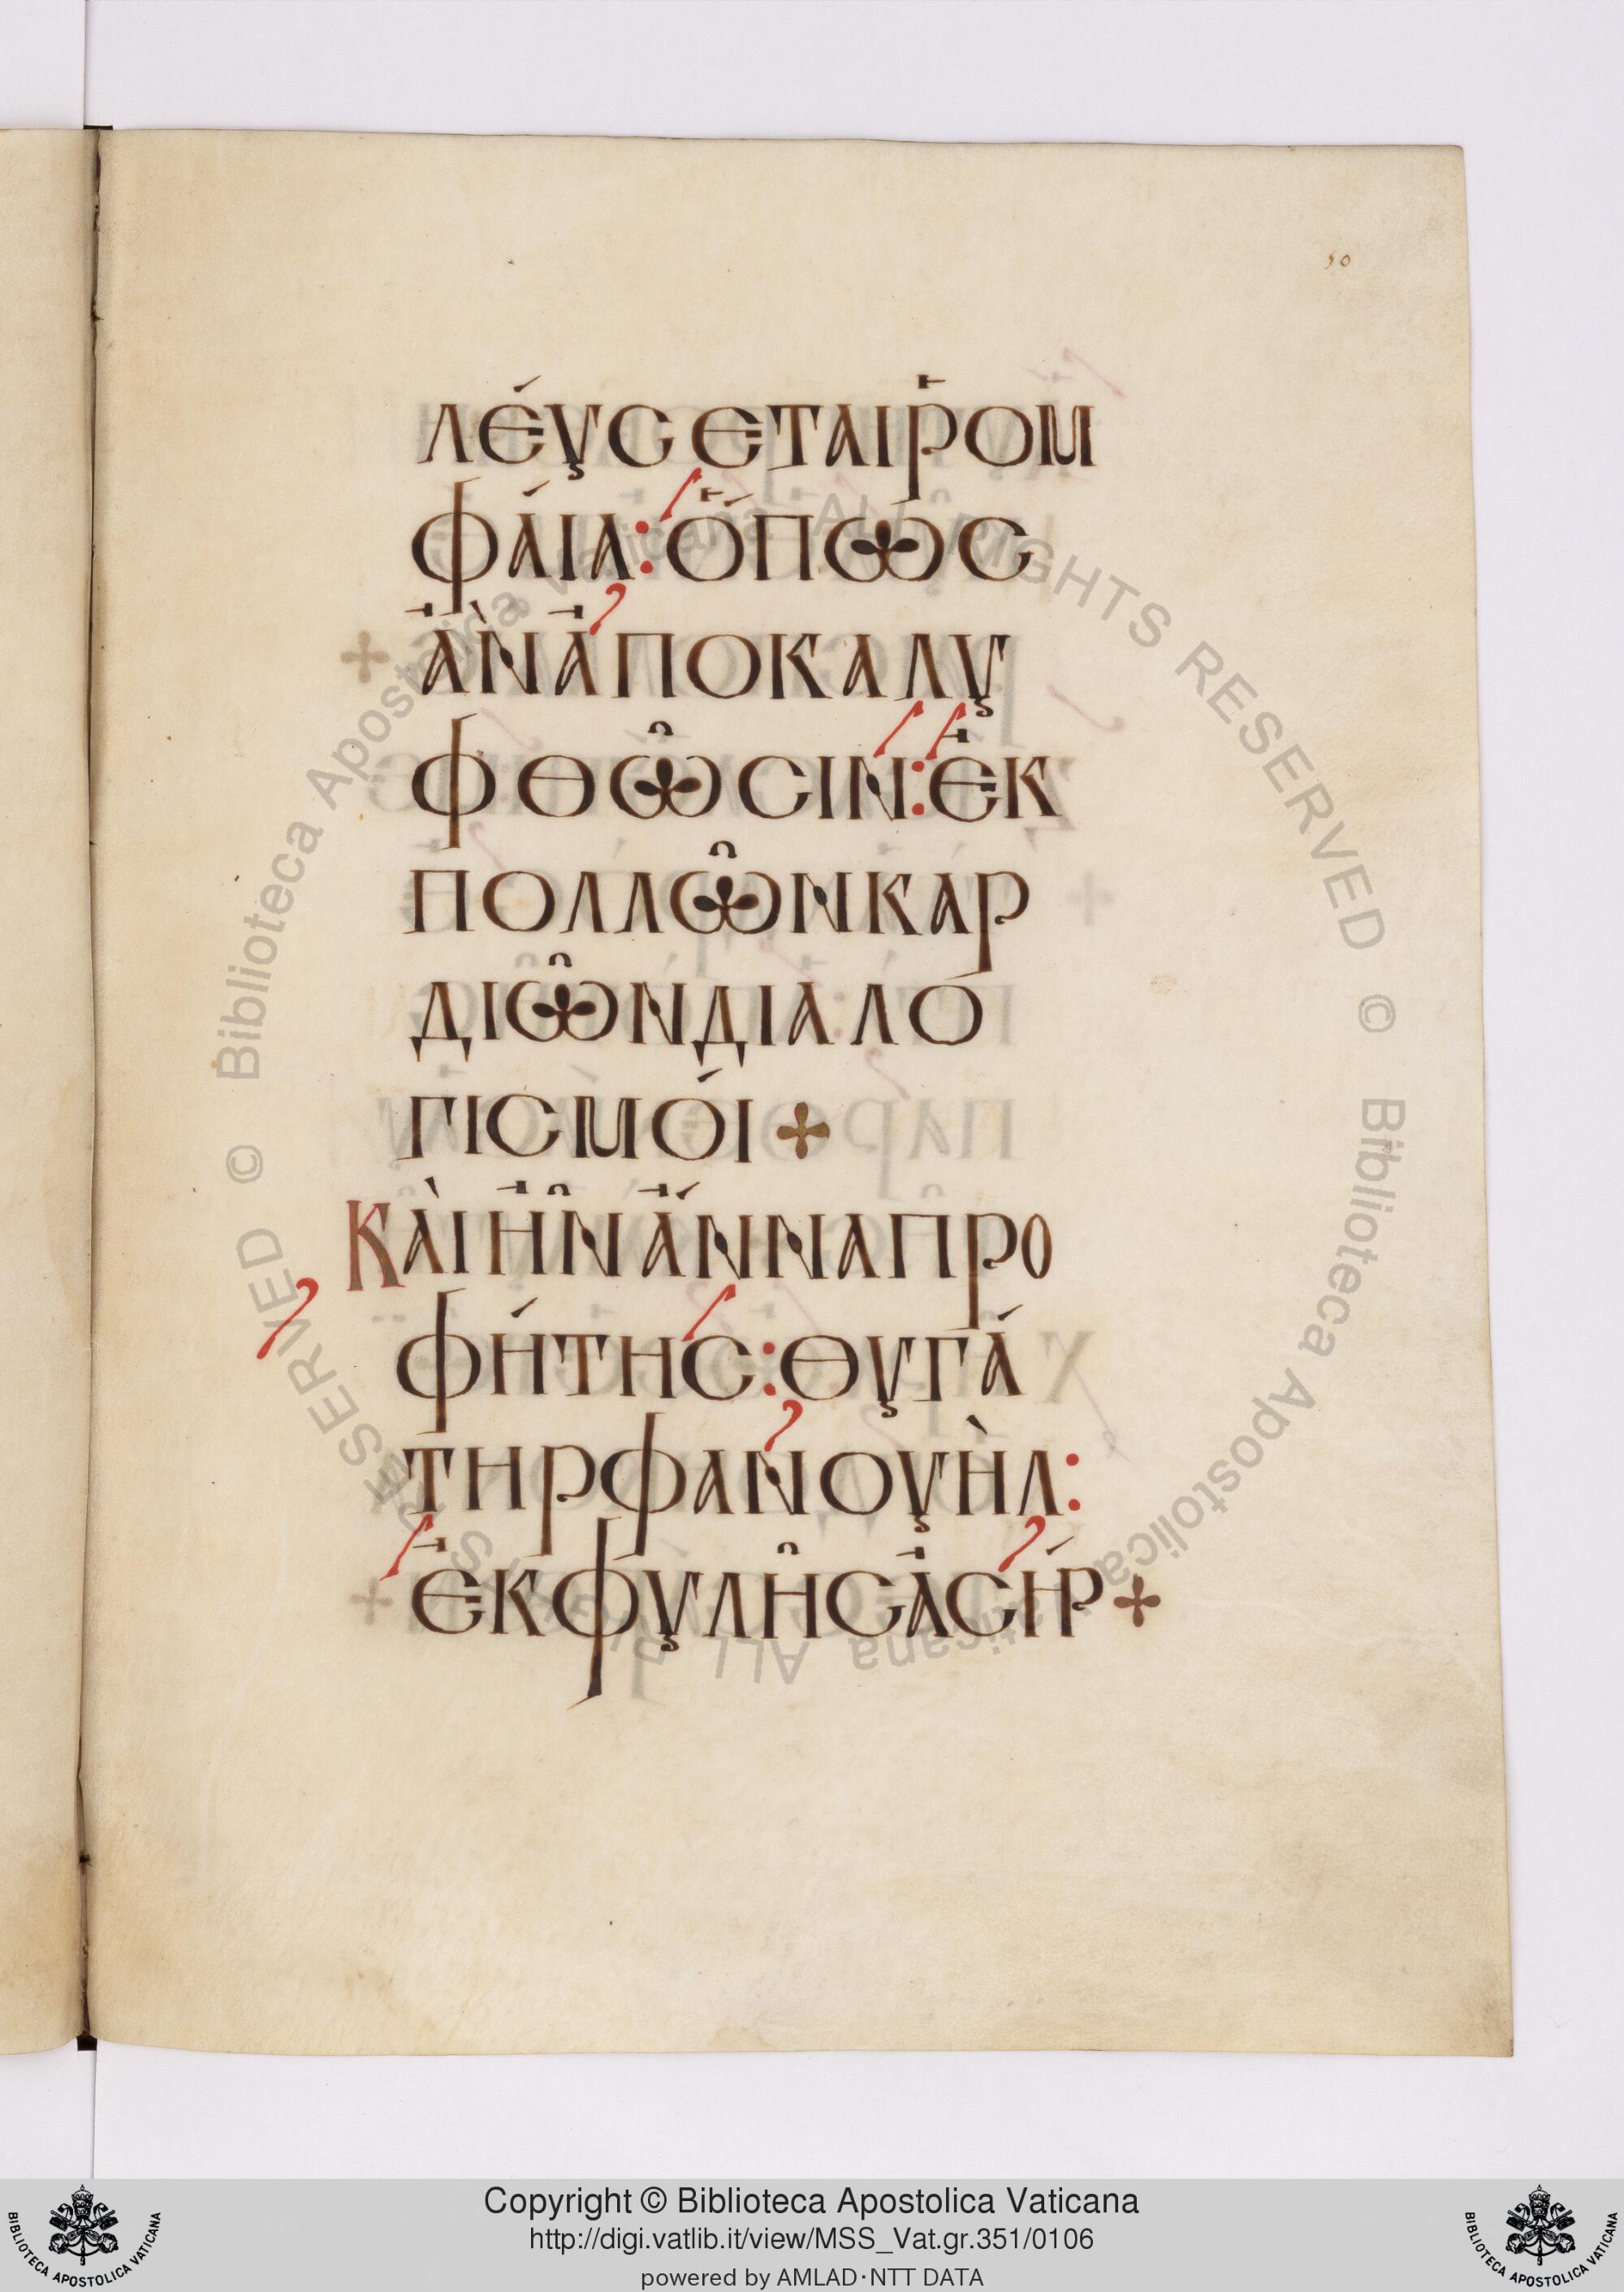 50
ΛΈΥϹΕΤΑΙῬΟΜ
ΦΆΙΑ: ὍΠΩϹ
ἈǸἈΠΟΚΑΛΥ
ΦΘΩ͂ϹΙΝ: ἘΚ
ΠΟΛΛΩ͂ΝΚΑΡ
ΔΙΩ͂ΝΔΙΑΛΟ
ΓΙϹΜΌΙ +
ΚᾺΙἮΝἌΝΝΑΠΡΟ
ΦΉΤΗϹ: ΘΥΓΆ
ΤΗΡΦΑΝΟΥῊΛ:
ἘΚΦΥΛΗ͂ϹἈϹΉΡ +
© Biblioteca Apostolica Vaticana ALL RIGHTS RESERVED © Biblioteca Apostolica Vaticana ALL RIGHTS RESERVED
BIBLIOTECA APOSTOLICA VATICANA
Copyright © Biblioteca Apostolica Vaticana
http://digi.vatlib.it/view/MSS_Vat.gr.351/0106
powered by AMLAD·NTT DATA
BIBLIOTECA APOSTOLICA VATICANA